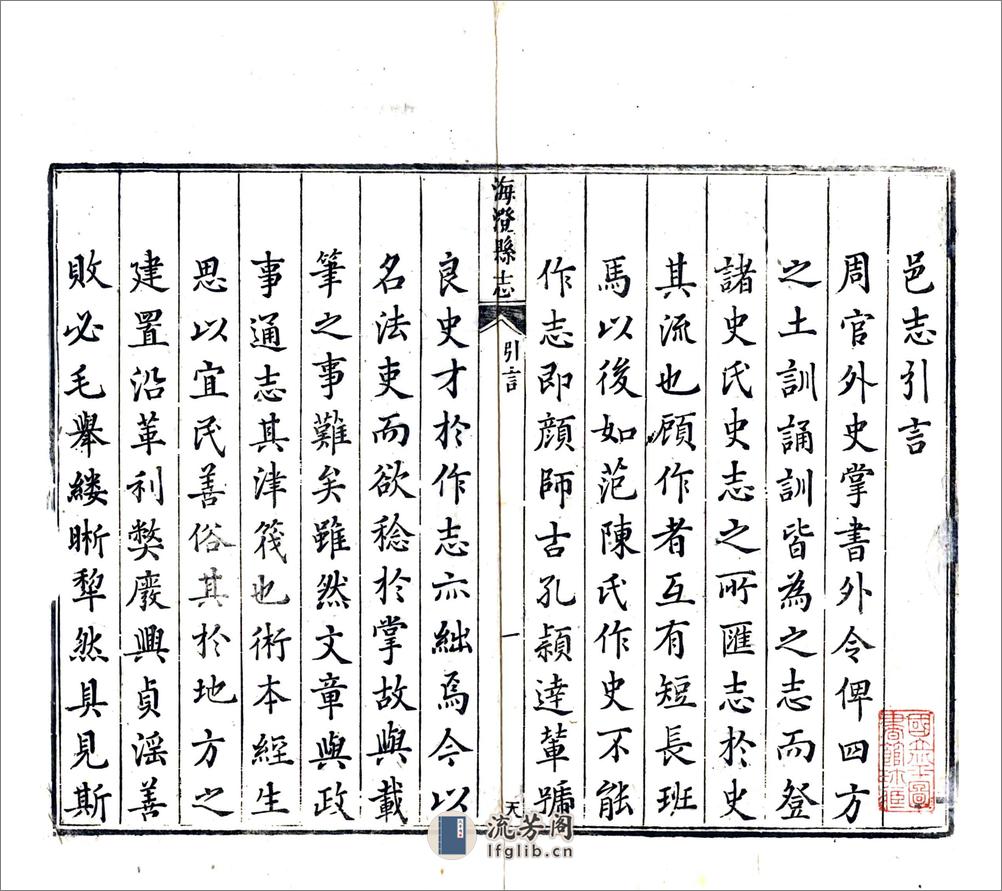 邑志引言
周官外史掌書外令俾四方
之土訓誦訓皆為之志而登
諸史氏史志之所匯志於史
其流也顧作者互有短長班
馬以後如范陳氏作史不能
作志即顏師古孔穎達輩號
海澄縣志
引言
一
天
良史才於作志亦絀焉今以
名法吏而欲稔於掌故與載
筆之事難矣雖然文章與政
事通志其津筏也術本經生
思以宜民善俗其於地方之
建置沿革利弊廢興貞淫善
敗必毛舉縷晰犁然具見斯
流芳阁
lfglib.cn